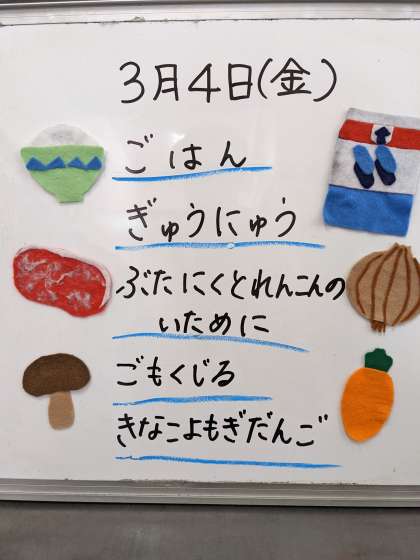 3月4日(金)
ごはん
ぎゅうにゅう
ぶたにくとれんこんの
いために
ごもくじる
きなこよもぎだんご